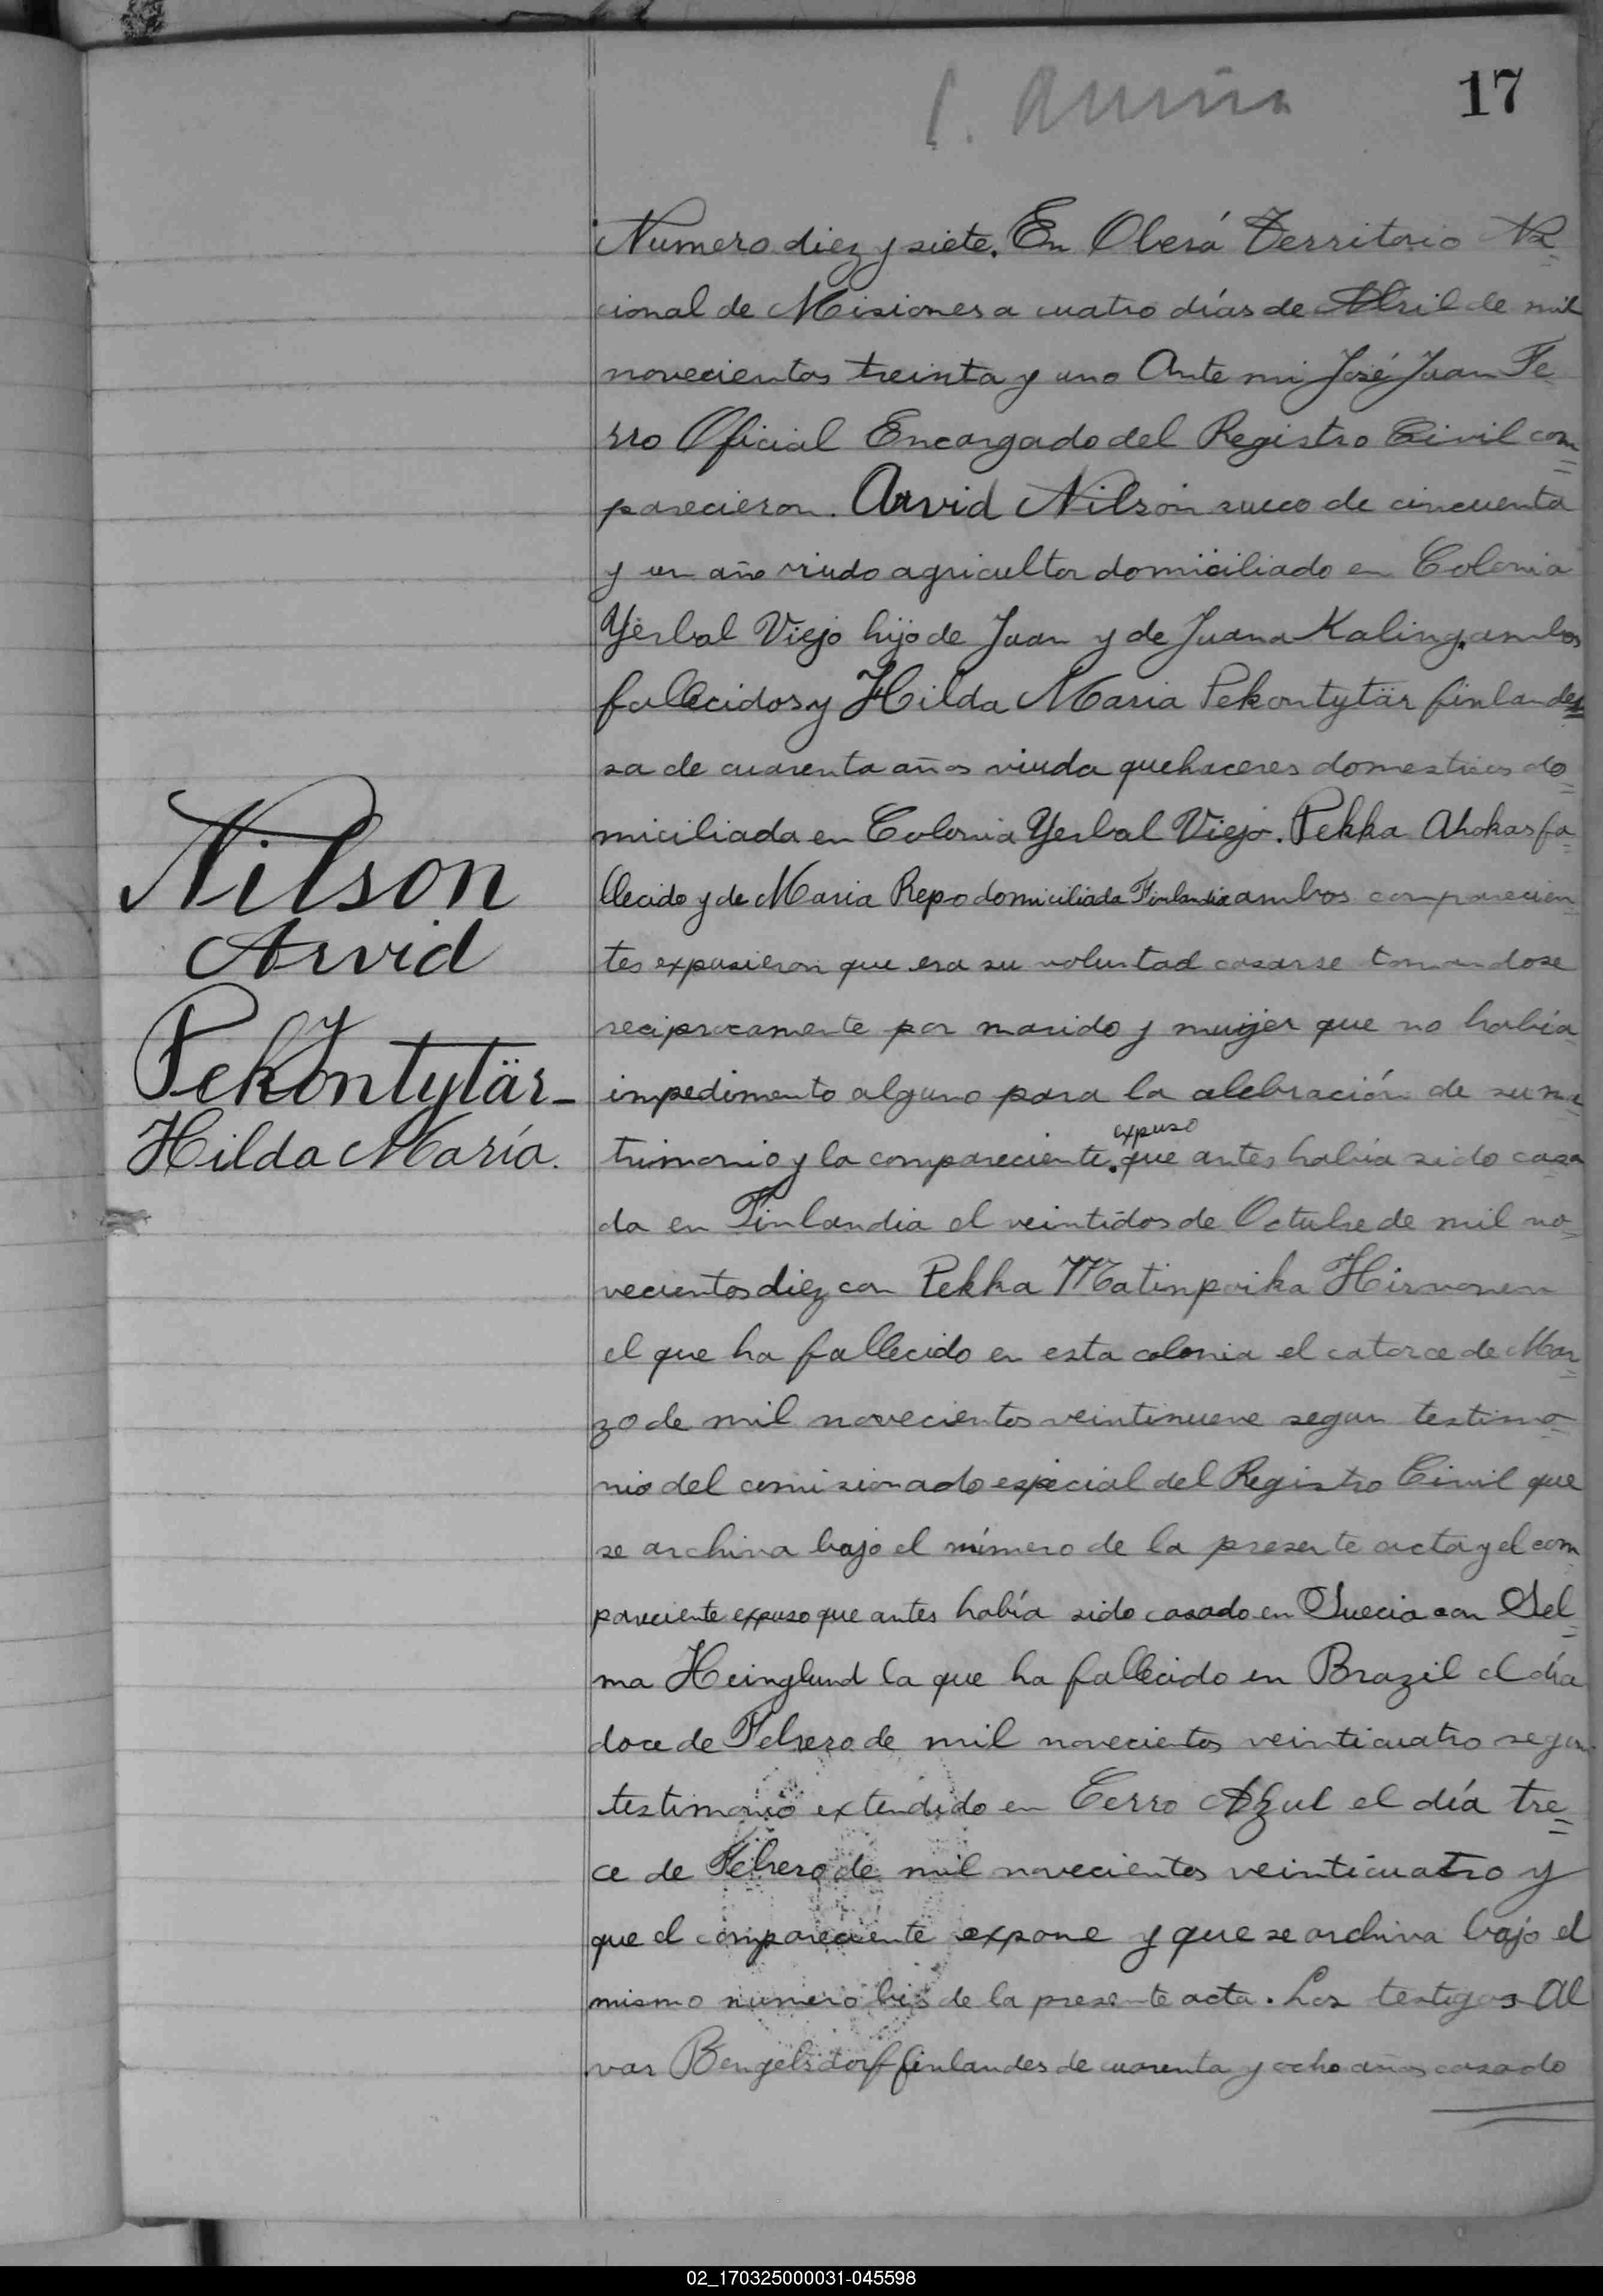 17
Numero diez y siete. En Oberá Territorio Na
cional de Misiones a cuatro días de Abril de mil
novecientos treinta y uno Ante mi José Juan Fe
rro Oficial Encargado del Registro Civil com
parecieron. Arvid Nilson sueco de cincuenta
y un año viudo agricultor domiciliado en Colonia
Yerbal Viejo hijo de Juan y de Juana Kaling. ambos
fallecidos y Hilda Maria Pekontytär finlande
sa de cuarenta años viuda quehaceres domesticos do
miciliada en Colonia Yerbal Viejo. Pekka Ahokas fa
llecido y de Maria Repo domiciliada Finlandia ambos comparecien
tes expusieron que era su voluntad casarse tomandose
reciprocamente por marido y mujer que no había
impedimento alguno para la celebración de su ma
trimonio y la compareciente. expuso que antes había sido casa
da en Finlandia el veintidos de Octubre de mil no
vecientos diez con Pekka Matinpoika Hirvonen
el que ha fallecido en esta colonia el catorce de Mar
zo de mil novecientos veintinueve segun testimo
nio del comisionado especial del Registro Civil que
se archiva bajo el número de la presente acta y el com
pareciente expuso que antes había sido casado en Suecia con Sel
ma Heinglund la que ha fallecido en Brazil el día
doce de Febrero de mil novecientos veinticuatro segun
testimonio extendido en Cerro Azul el día tre
ce de Febrero de mil novecientos veinticuatro y
que el compareciente expone y que se archiva bajo el
mismo numero bis de la presente acta. Los testigos Al
var Bengelsdorf finlandes de cuarenta y ocho años casado
Nilson
Arvid
y
Pekontytär-
Hilda María.
02_170325000031-045598